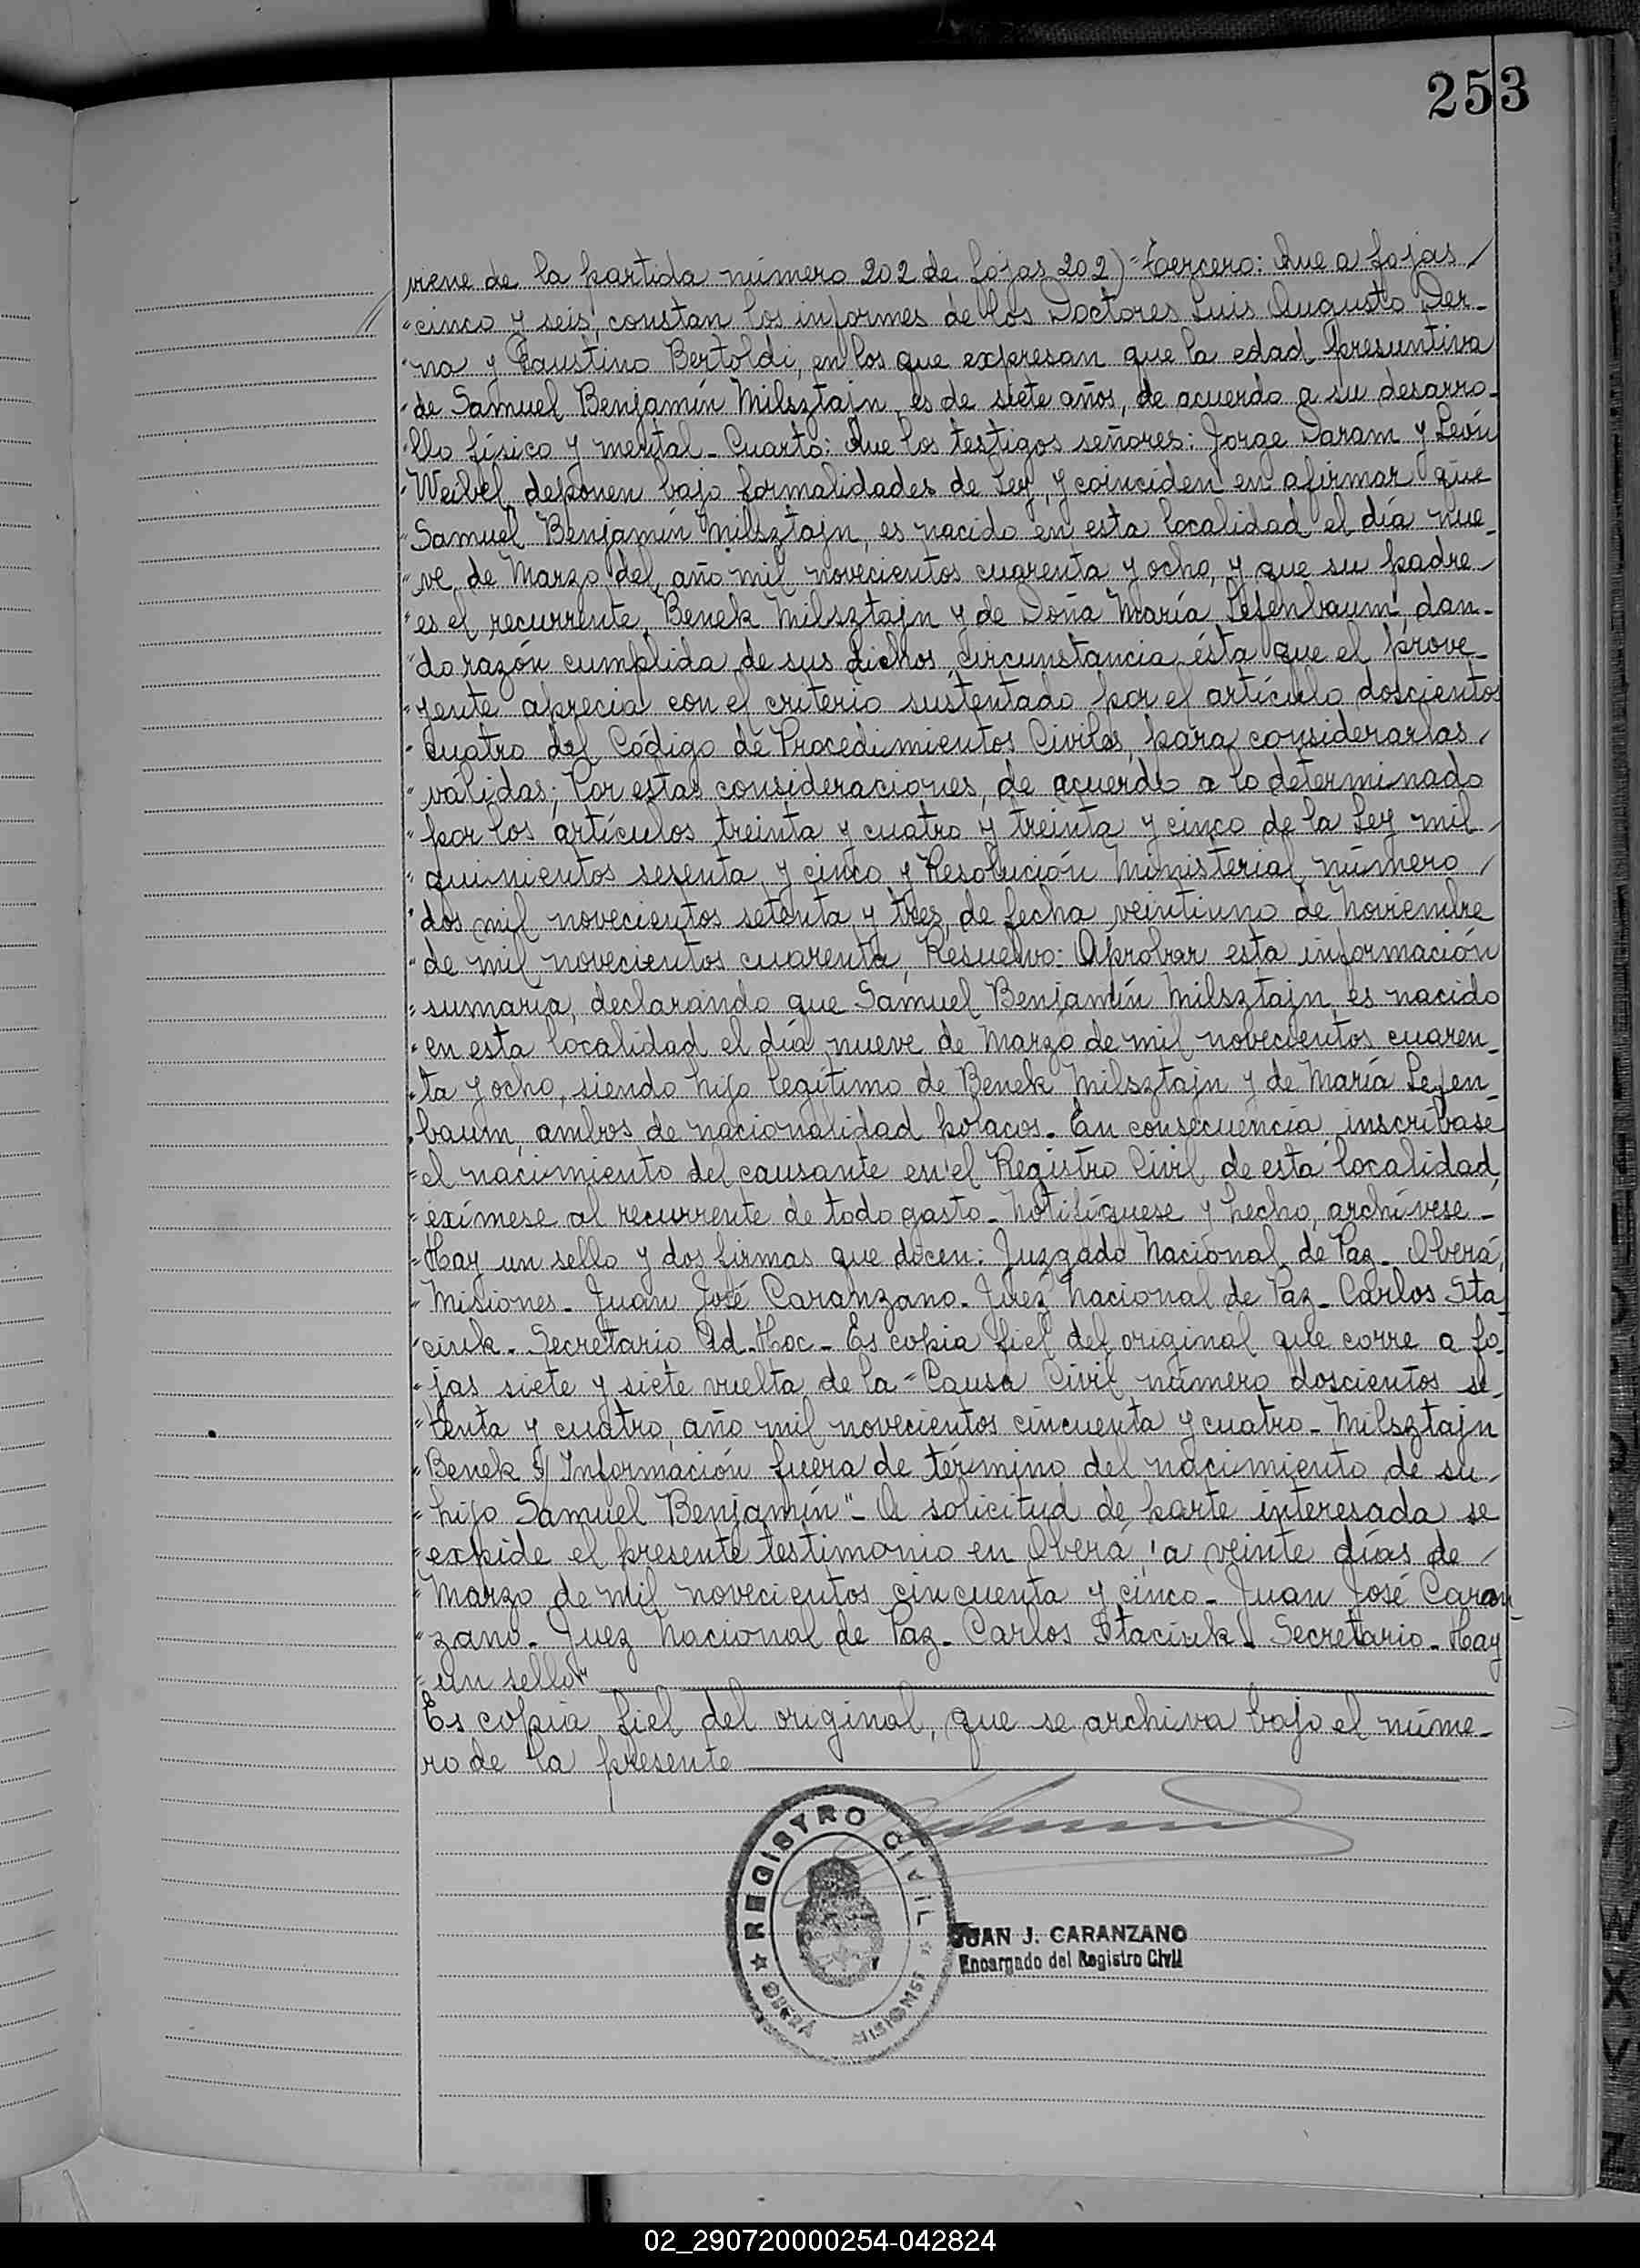 253
viene de la partida número 202 de fojas 202) "Tercero: Que a fojas /
"cinco y seis, constan los informes de los Doctores Luis Augusto Der-
"na y Faustino Bertoldi, en los que expresan que la edad presuntiva
"de Samuel Benjamín Milsztajn, es de siete años, de acuerdo a su desarro-
"llo físico y mental. Cuarto: Que los testigos señores: Jorge Daram y León
"Weibel, deponen bajo formalidades de Ley, y coinciden en afirmar que
"Samuel Benjamín Milsztajn, es nacido en esta localidad el día nue-
"ve de Marzo del año mil novecientos cuarenta y ocho, y que su padre
"es el recurrente, Benek Milsztajn y de Doña María Lefenbaum, dan-
"do razón cumplida de sus dichos, circunstancia ésta que el prove-
"yente aprecia con el criterio sustentado por el artículo doscientos
"cuatro del Código de Procedimientos Civiles, para considerarlas /
"válidas; Por estas consideraciones, de acuerdo a lo determinado
"por los artículos treinta y cuatro y treinta y cinco de la Ley mil /
"quinientos sesenta y cinco y Resolución Ministerial número /
"dos mil novecientos setenta y tres, de fecha veintiuno de Noviembre
"de mil novecientos cuarenta, Resuelvo: Aprobar esta información
"sumaria, declarando que Samuel Benjamín Milsztajn, es nacido
"en esta localidad el día nueve de Marzo de mil novecientos cuaren-
"ta y ocho, siendo hijo legítimo de Benek Milsztajn y de María Lefen
"baum, ambos de nacionalidad polacos. En consecuencia, inscríbase
"el nacimiento del causante en el Registro Civil de esta localidad,
"exímese al recurrente de todo gasto. Notifíquese y hecho, archívese -
"Hay un sello y dos firmas que dicen: Juzgado Nacional de Paz. Oberá,
"Misiones. Juan José Caranzano. Juez Nacional de Paz. Carlos Sta
"ciuk. Secretario Ad-Hoc. Es copia fiel del original que corre a fo-
"jas siete y siete vuelta de la "Causa Civil número doscientos se-
"tenta y cuatro, año mil novecientos cincuenta y cuatro. Milsztajn
"Benek s/ Información fuera de término del nacimiento de su /
"hijo Samuel Benjamín". A solicitud de parte interesada se
"expide el presente testimonio en Oberá, a veinte días de /
"Marzo de mil novecientos cincuenta y cinco. Juan José Caran-
"zano. Juez Nacional de Paz. Carlos Staciuk. Secretario. Hay
"un sello"
Es copia fiel del original, que se archiva bajo el núme-
ro de la presente
REGISTRO CIVIL
OBERÁ MISIONES
JUAN J. CARANZANO
Encargado del Registro Civil
02_290720000254-042824